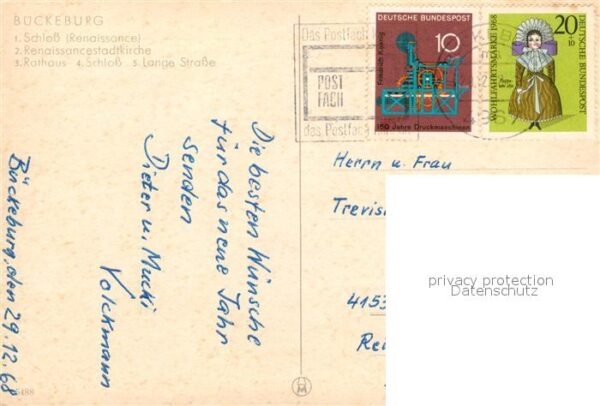 BÜCKEBURG
1. Schloß (Renaissance)
2. Renaissancestadtkirche
3. Rathaus 4. Schloß 5. Lange Straße
Das Postfach
POST
FACH
das Postfach
DEUTSCHE BUNDESPOST
10
Friedrich Koenig
150 Jahre Druckmaschinen
20
+10
WOHLFAHRTSMARKE 1968
DEUTSCHE BUNDESPOST
Puppe
Die besten Wünsche
für das neue Jahr
senden
Dieter u. Mucki
Volckmann
Bückeburg, den 29.12.68
Herrn u. Frau
Trevis
4153
Re
privacy protection
Datenschutz